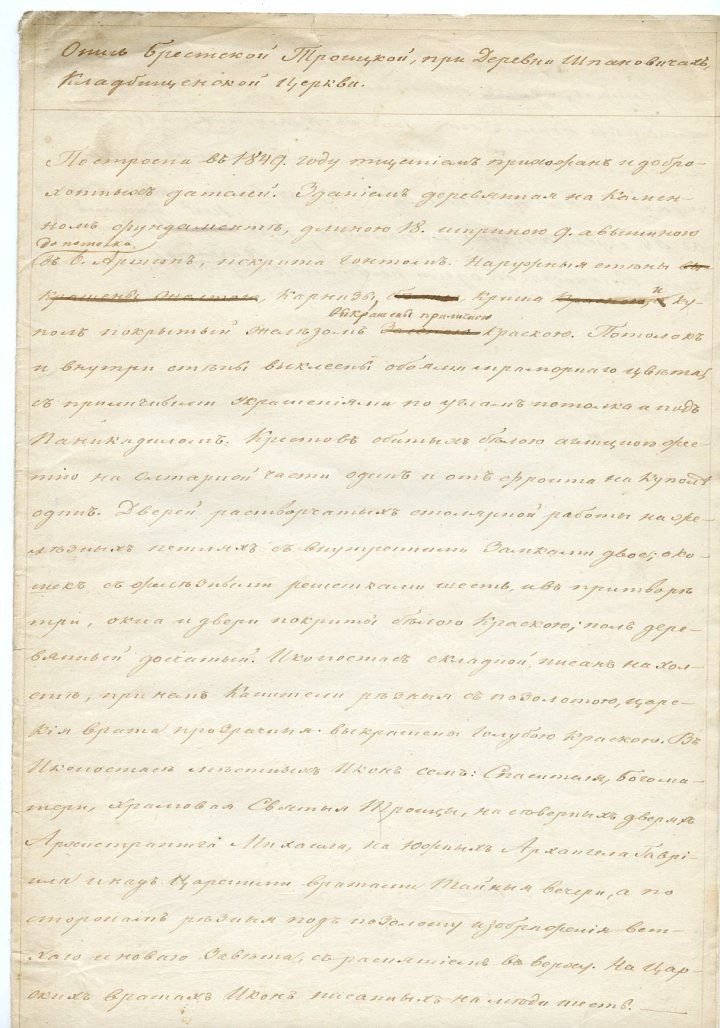 Опись Брестской Троицкой, при Деревни Шпановичахъ,
Кладбищенской Церкви.
Построена въ 1849. году тщаніемъ прихожанъ и добро-
хотныхъ дателей. Зданіемъ деревянная на камен-
номъ фундаментѣ, длиною 18. шириною 9. а вышиною
до потолка
въ 6. Аршинъ, покрыта гонтомъ. Наружныя стѣны
Карнизы, Крыша и ку-
выкрашены приличною
полъ покрытый желѣзомъ краскою. Потолокъ
и внутри стѣны выклеены обоями мраморнаго цвѣта,
съ приличными украшеніями по угламъ потолка и подъ
Паникадиломъ. Крестовъ обитыхъ бѣлою англицкою же-
стію на олтарной части одинъ и отъ фронта на куполѣ
одинъ. Дверей растворчатыхъ столярной работы на же-
лѣзныхъ петляхъ съ внутренними замками двое; око-
шекъ съ желѣзными решетками шесть, и въ притворѣ
три, окна и двери покриты бѣлою Краскою; полъ дере-
вянный досчатый. Иконостасъ складной, писанъ на хол-
стѣ, при немъ Капители рѣзныя съ позолотою, царс-
кія врата прозрачныя выкрашены голубою Краскою. Въ
Иконостасѣ мѣстныхъ Иконъ семъ: Спасителя, Богома-
тери, храмовая Святыя Троицы, на северныхъ дверяхъ
Архистратига Михаила, на Южныхъ Архангела Гаврі-
ила и надъ Царскими вратами Тайныя вечери, а по
сторонамъ рѣзныя подъ позолоту изображенія вет-
хаго и новаго Завѣта, съ распятіемъ въ верху. На Цар-
скихъ вратахъ Иконъ писанныхъ на меди шесть.